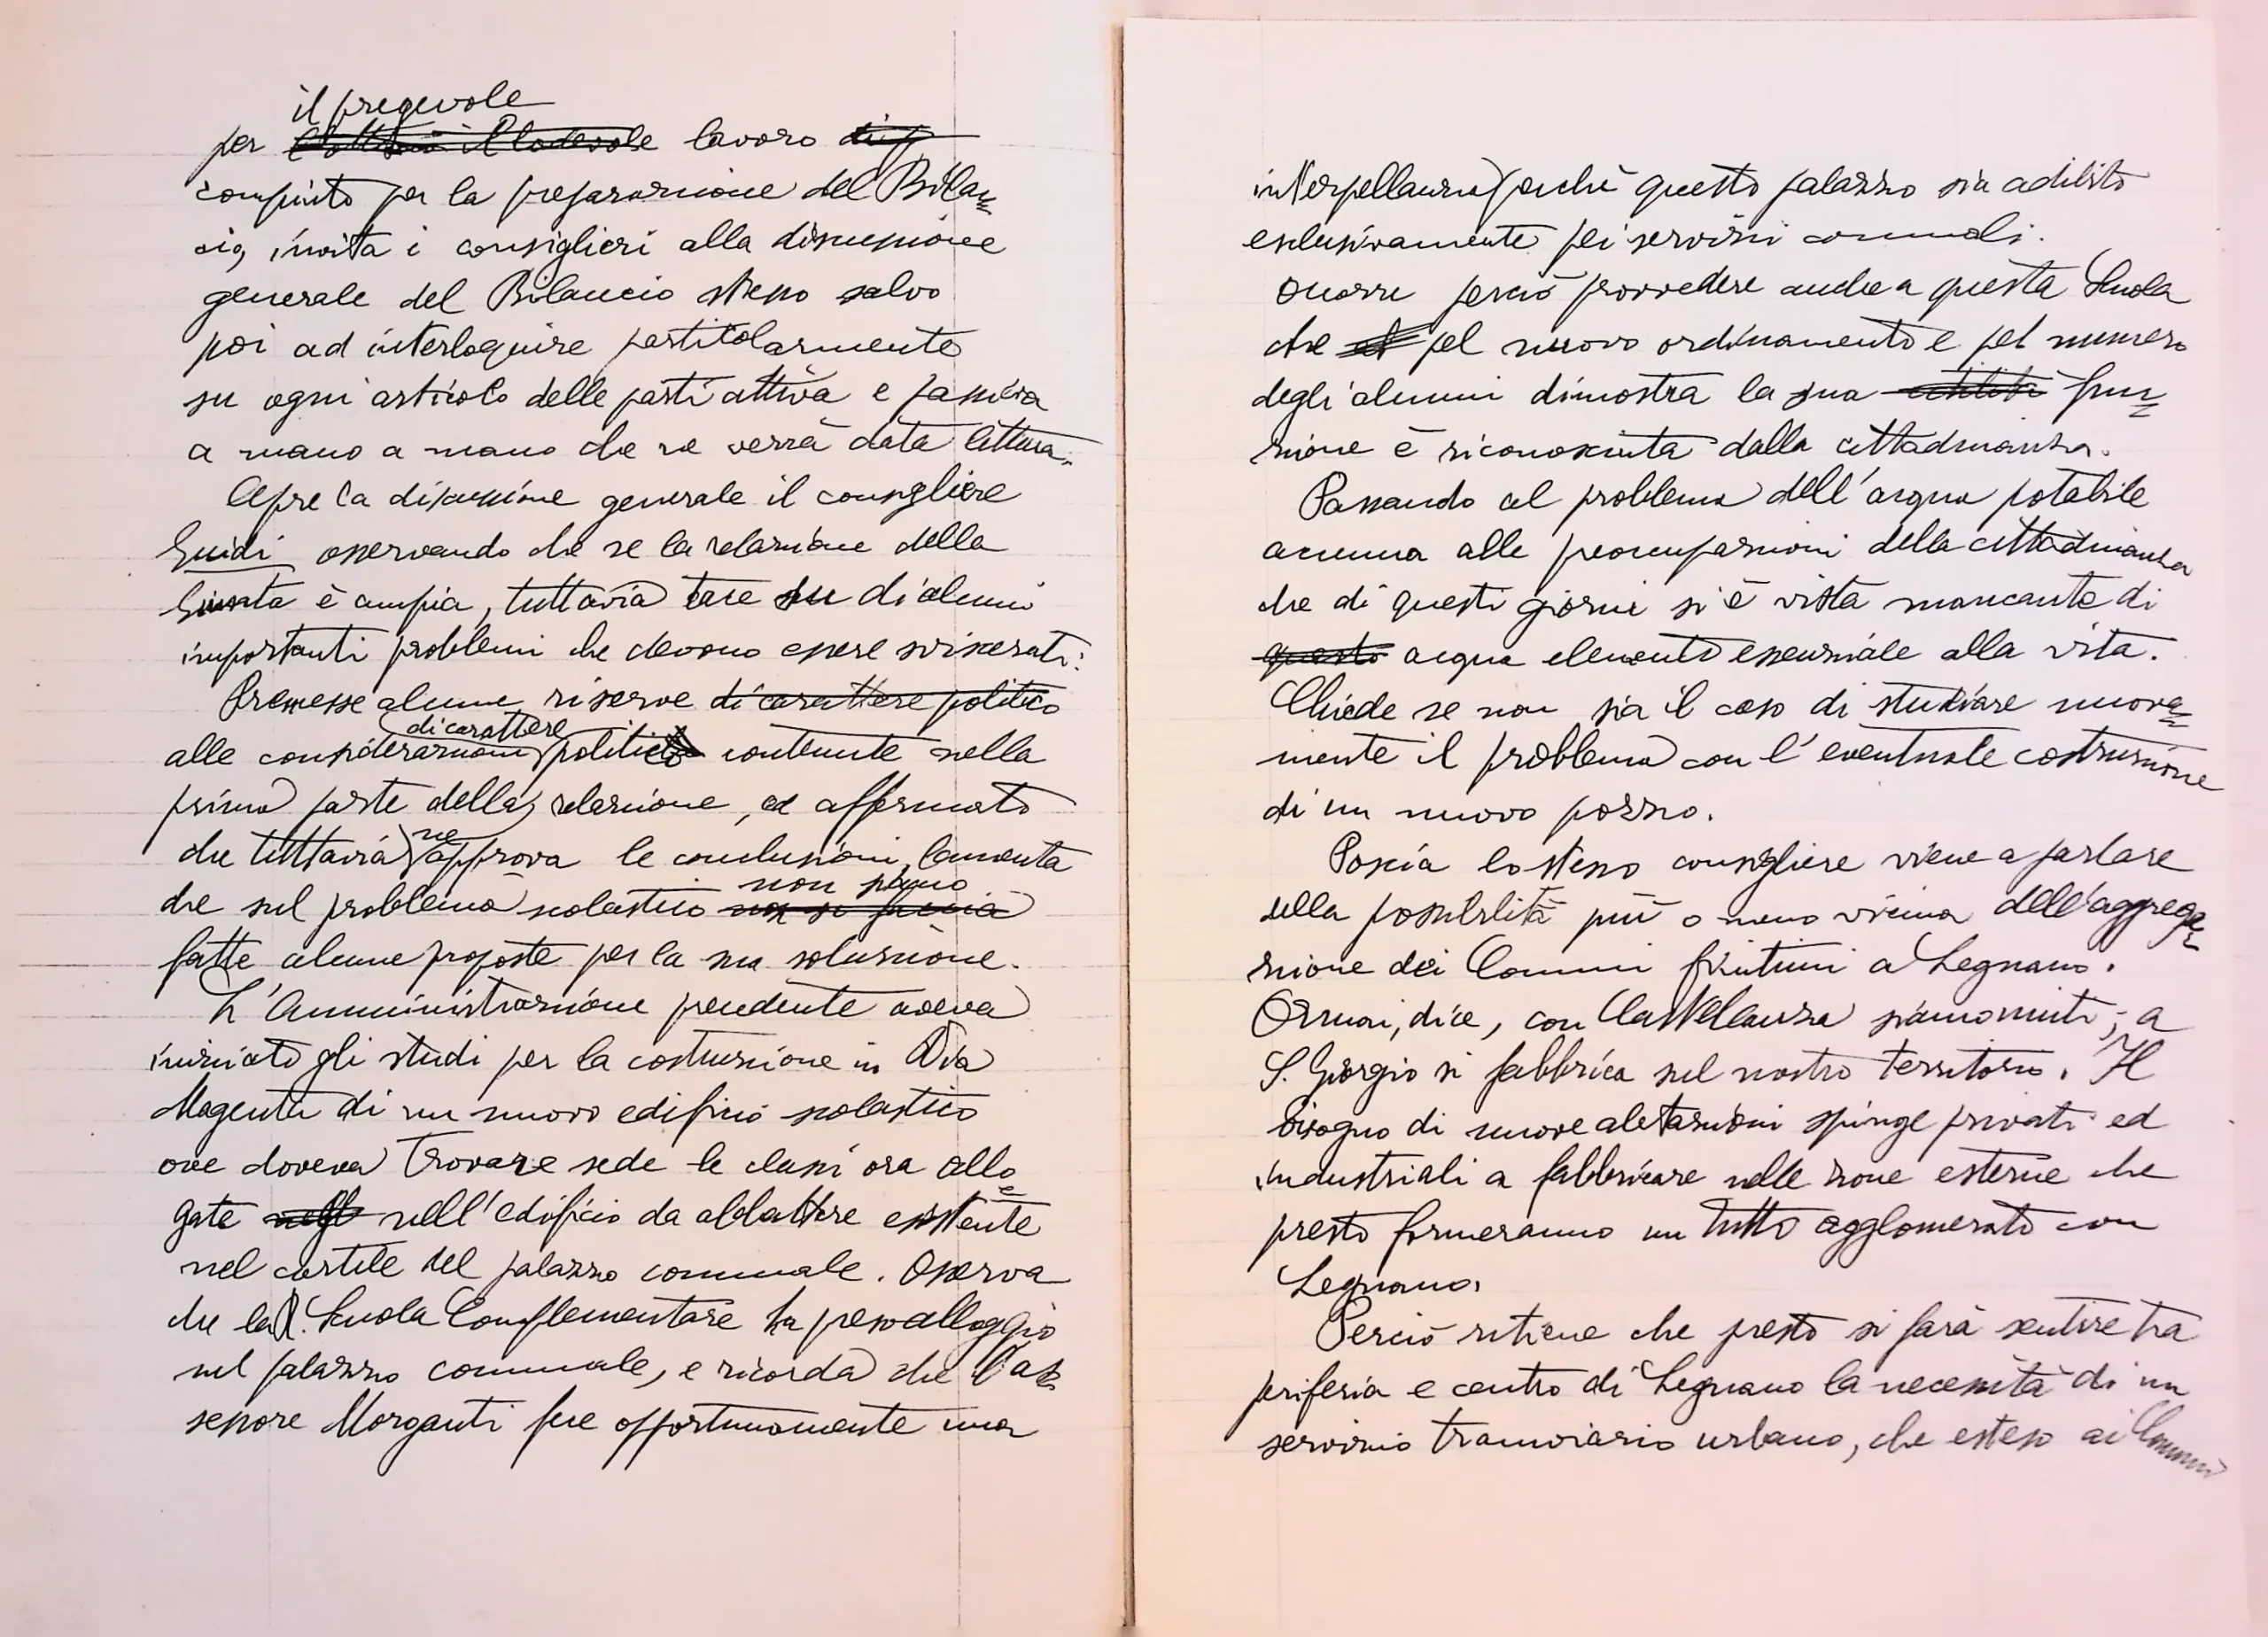 il pregevole
per l'ottimo il lodevole lavoro di p
compiuto per la preparazione del Bilan=
cio, invita i consiglieri alla discussione
generale del Bilancio stesso salvo
poi ad interloquire partitolarmente
su ogni articolo delle parti attiva e passiva
a mano a mano che ne verrà data lettura.
Apre la discussione generale il consigliere
Guidi osservando che se la relazione della
Giunta è ampia, tuttavia tace su di alcuni
importanti problemi che devono essere sviscerati:
Premesse alcune riserve di carattere politico
di carattere
alle considerazioni politico contenute nella
prima parte della relazione, ed affermato
ne
che tuttavia approva le conclusioni, lamenta
non siano
che sul problema scolastico non si faccia
fatte alcune proposte per la sua soluzione.
L'Amministrazione precedente aveva
iniziato gli studi per la costruzione in Via
Magenta di un nuovo edificio scolastico
ove doveva trovare sede le classi ora allo=
gate nell nell'edificio da abbattere esistente
nel cortile del palazzo comunale. Osserva
che la R. Scuola Complementare ha preso alloggio
nel palazzo comunale, e ricorda che l'as=
sessore Morganti fece opportunamente una
interpellanza perchè questo palazzo sia adibito
esclusivamente pei servizi comunali.
Occorre perciò provvedere anche a questa Scuola
che pel nuovo ordinamento e pel numero
degli alunni dimostra la sua utilità fun=
zione è riconosciuta dalla cittadinanza.
Passando al problema dell'acqua potabile
accenna alle preoccupazioni della cittadinanza
che di questi giorni si è vista mancante di
questo acqua elemento essenziale alla vita.
Chiede se non sia il caso di studiare nuova=
mente il problema con l'eventuale costruzione
di un nuovo pozzo.
Poscia lo stesso consigliere viene a parlare
della possibilità più o meno vicina dell'aggrega=
zione dei Comuni finitimi a Legnano.
Ormai, dice, con Castellanza siamo uniti; a
S. Giorgio si fabbrica sul nostro territorio. Il
bisogno di nuove abitazioni spinge privati ed
industriali a fabbricare nelle zone esterne che
presto formeranno un tutto agglomerato con
Legnano.
Perciò ritiene che presto si farà sentire tra
periferia e centro di Legnano la necessità di un
servizio tramviario urbano, che esteso ai Comuni